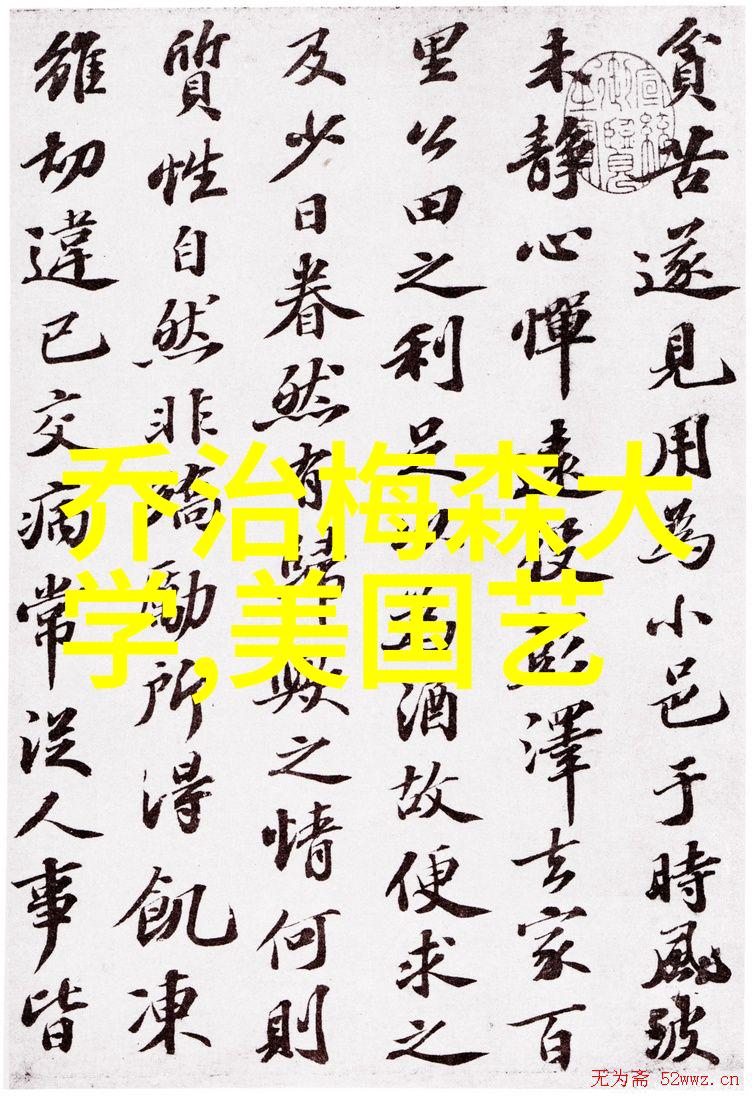 貧苦遂見用為小邑于時風波
未靜心憚遠役彭澤去家百
里公田之利足以為酒故便求之
及少日眷然有歸歟之情何則
質性自然非矯勵所得飢凍
雖切違已交病常從人事皆
乔治梅森大
学,美国艺
无为斋 52wwz.cn